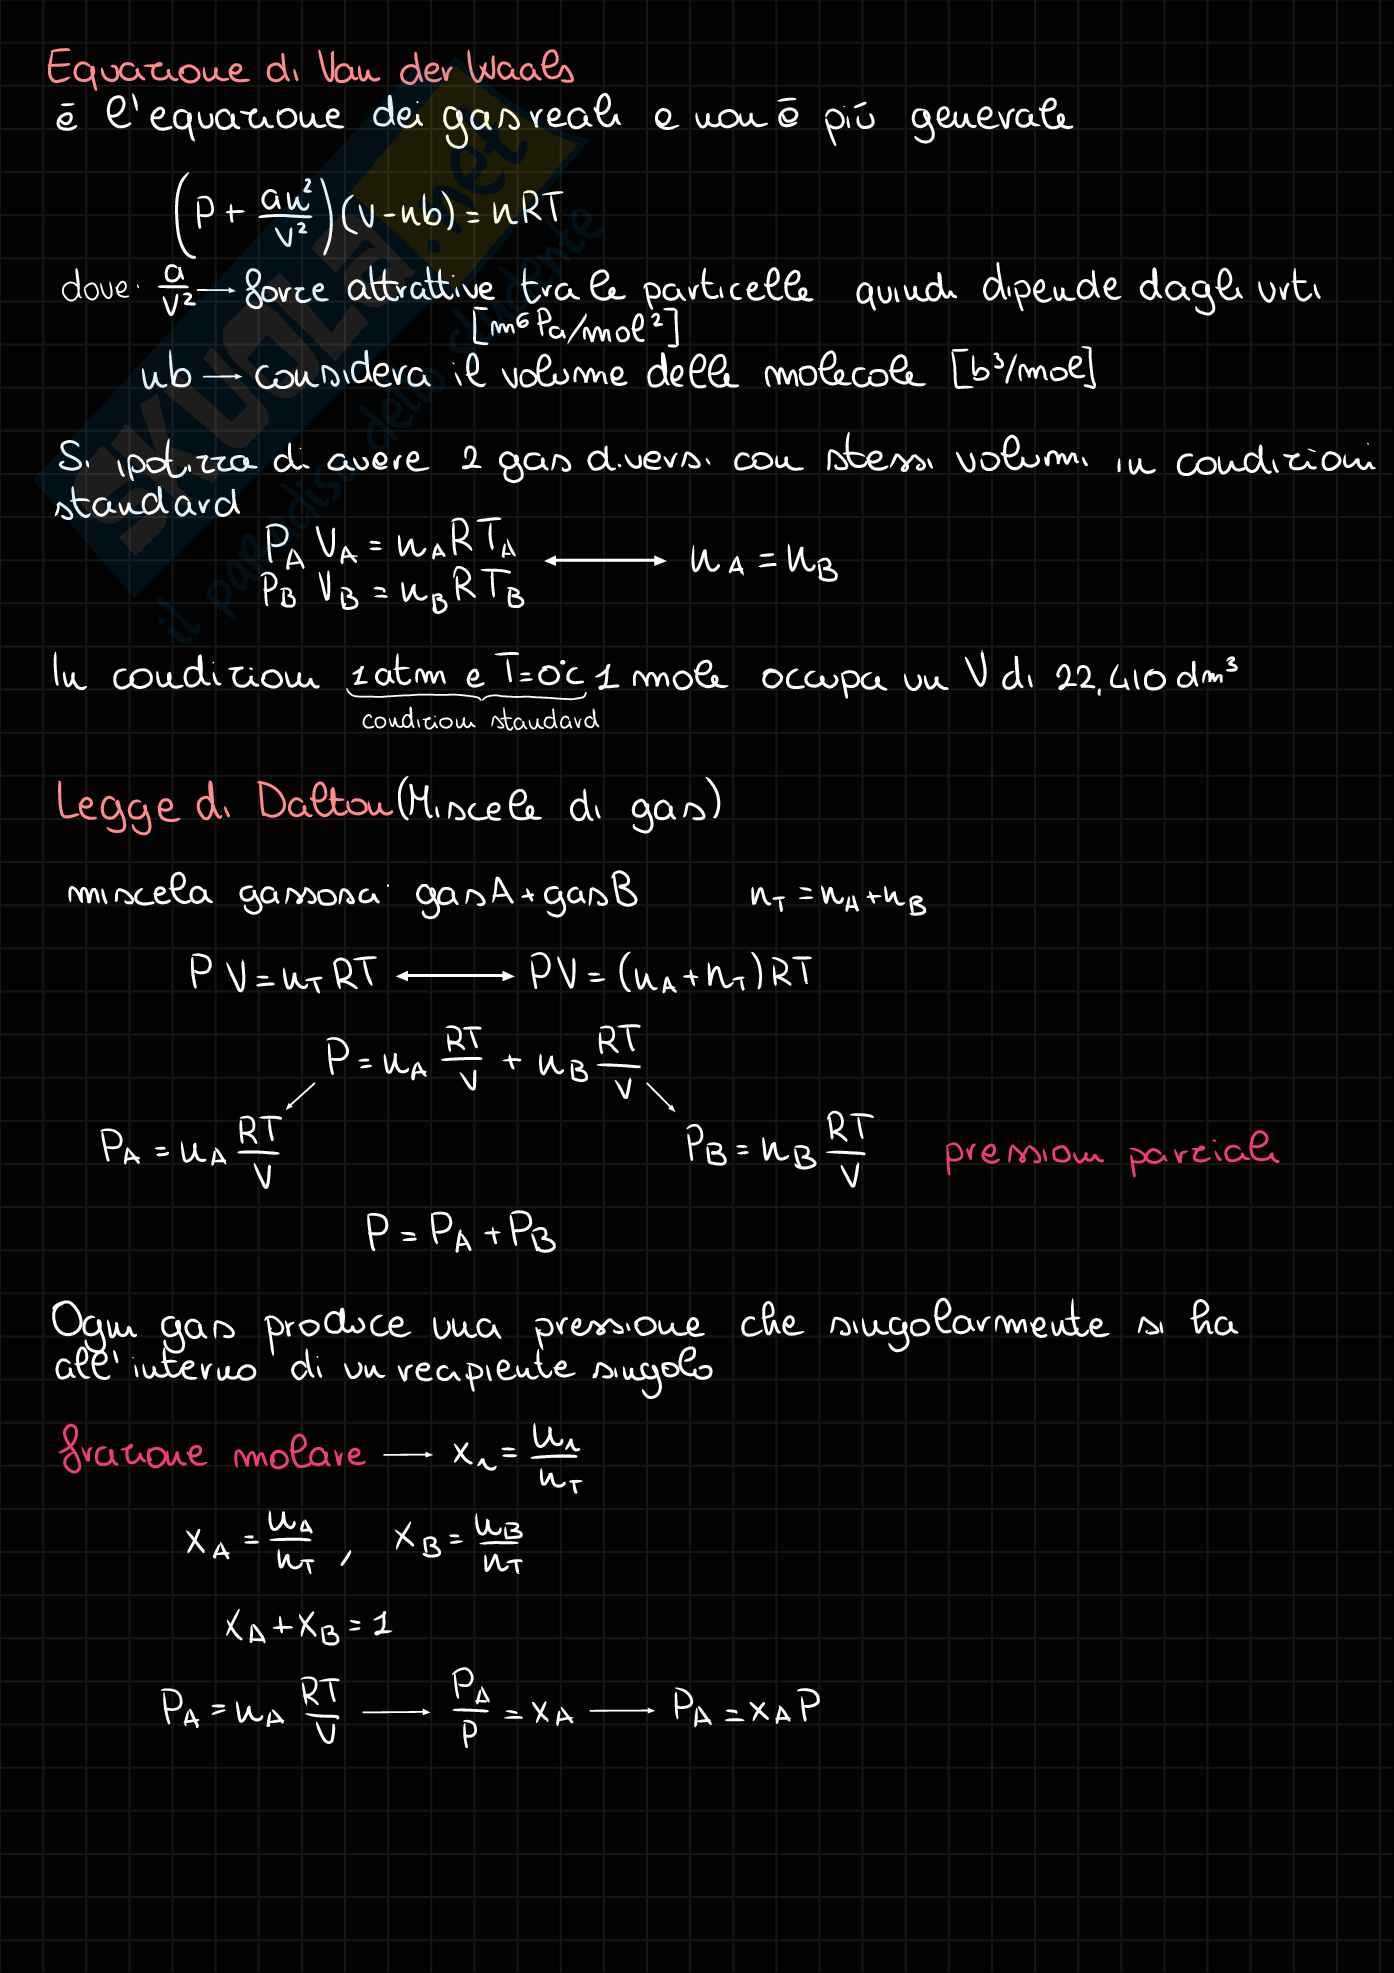 Equazione di Van der Waals
è l'equazione dei gas reali e non è più generale
(P + an²/V²)(V-nb) = nRT
dove: a/V² → forze attrattive tra le particelle quindi dipende dagli urti
[m⁶Pa/mol²]
nb → considera il volume delle molecole [b³/mol]
Si ipotizza di avere 2 gas diversi con stessi volumi in condizioni
standard
P_A V_A = n_A R T_A
P_B V_B = n_B R T_B ⟷ n_A = n_B
In condizioni 1 atm e T=0°C 1 mole occupa un V di 22,410 dm³
condizioni standard
Legge di Dalton (Miscele di gas)
miscela gassosa: gas A + gas B n_T = n_A + n_B
PV = n_T RT ⟷ PV = (n_A + n_T) RT
P = n_A RT/V + n_B RT/V
P_A = n_A RT/V P_B = n_B RT/V pressioni parziali
P = P_A + P_B
Ogni gas produce una pressione che singolarmente si ha
all'interno di un recipiente singolo
frazione molare → x_i = n_i/n_T
x_A = n_A/n_T , x_B = n_B/n_T
x_A + x_B = 1
P_A = n_A RT/V → P_A/P = x_A → P_A = x_A P
SKUOLA.net
il paradiso dello studente